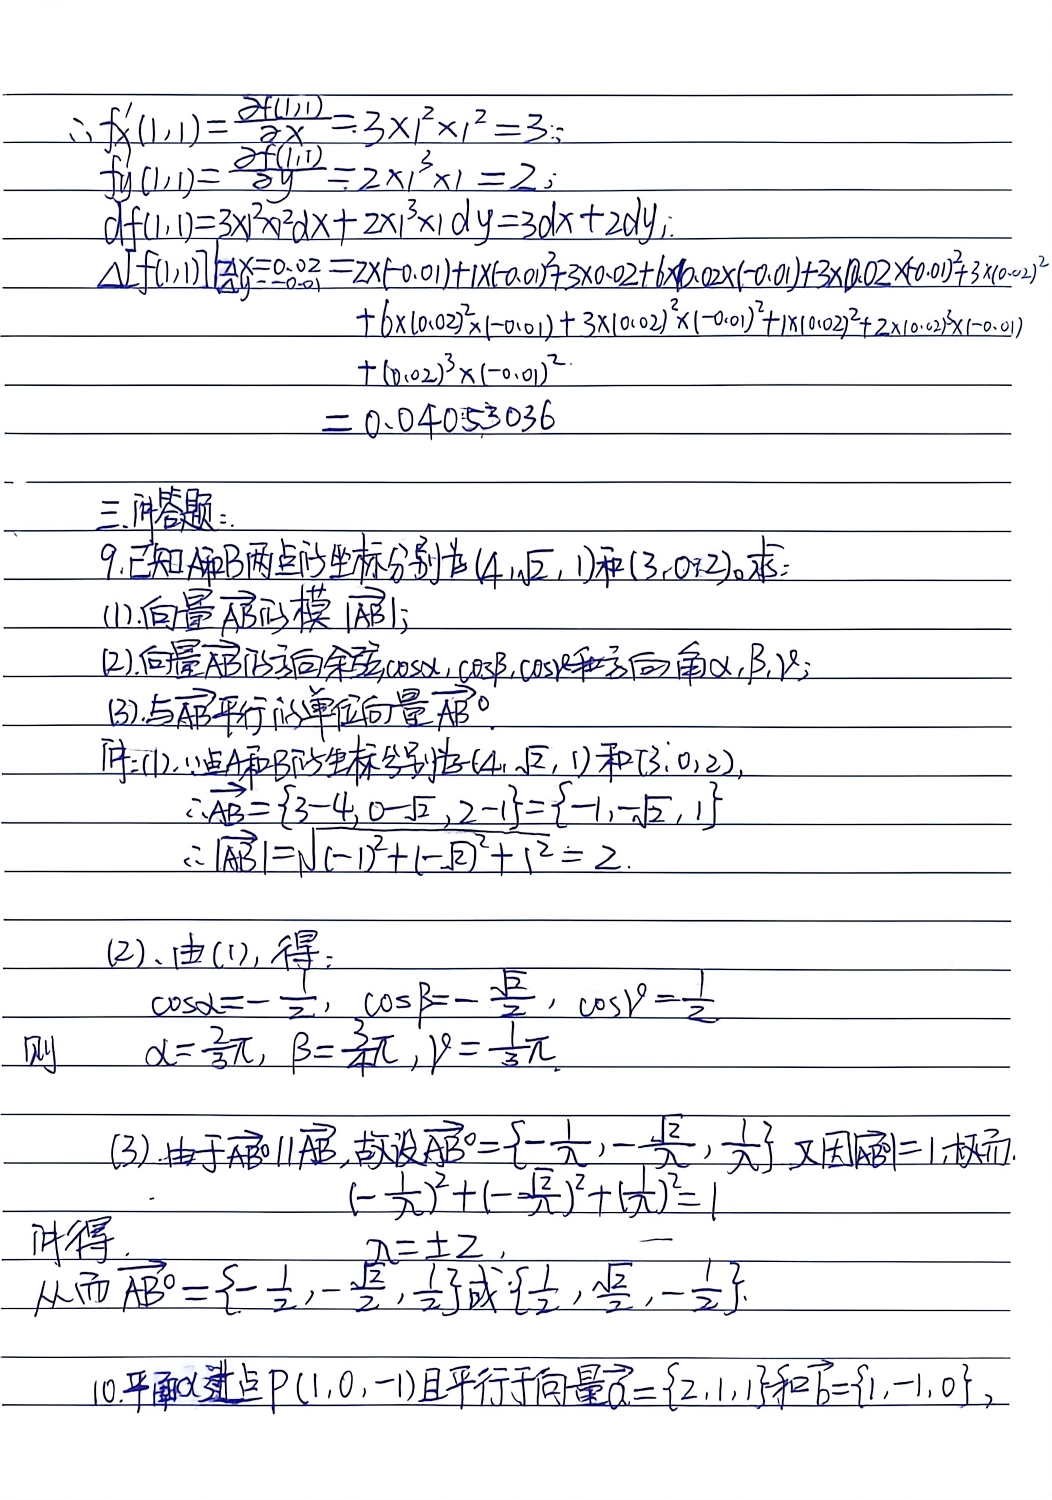 ∴ fx'(1,1)=∂f(1,1)/∂x=3×1²×1²=3;
fy'(1,1)=∂f(1,1)/∂y=2×1³×1=2;
df(1,1)=3×1²×1²dx+2×1³×1dy=3dx+2dy;
Δ[f(1,1)]|Δx=0.02 Δy=-0.01 =2×(-0.01)+1×(-0.01)²+3×0.02+6×0.02×(-0.01)+3×0.02×(-0.01)²+3×(0.02)²
+6×(0.02)²×(-0.01)+3×(0.02)²×(-0.01)²+1×(0.02)²+2×(0.02)³×(-0.01)
+(0.02)³×(-0.01)²
=0.04053036
三.解答题:
9.已知A和B两点的坐标分别为(4,√2,1)和(3,0,2)。求:
(1).向量AB的模|AB|;
(2).向量AB的方向余弦cosα,cosβ,cosγ和方向角α,β,γ;
(3).与AB平行的单位向量AB⁰.
解:(1).∵点A和B的坐标分别为(4,√2,1)和(3,0,2),
∴AB={3-4,0-√2,2-1}={-1,-√2,1}
∴|AB|=√((-1)²+(-√2)²+1²)=2.
(2)、由(1),得:
cosα=-1/2, cosβ=-√2/2, cosγ=1/2
则 α=2/3π, β=3/4π, γ=1/3π.
(3).由于AB⁰∥AB,故设AB⁰={-1/λ,-√2/λ,1/λ} 又因|AB⁰|=1,故而.
(-1/λ)²+(-√2/λ)²+(1/λ)²=1
解得. λ=±2,
从而AB⁰={-1/2,-√2/2,1/2}或{1/2,√2/2,-1/2}.
10.平面α过点P(1,0,-1)且平行于向量a={2,1,1}和b={1,-1,0},